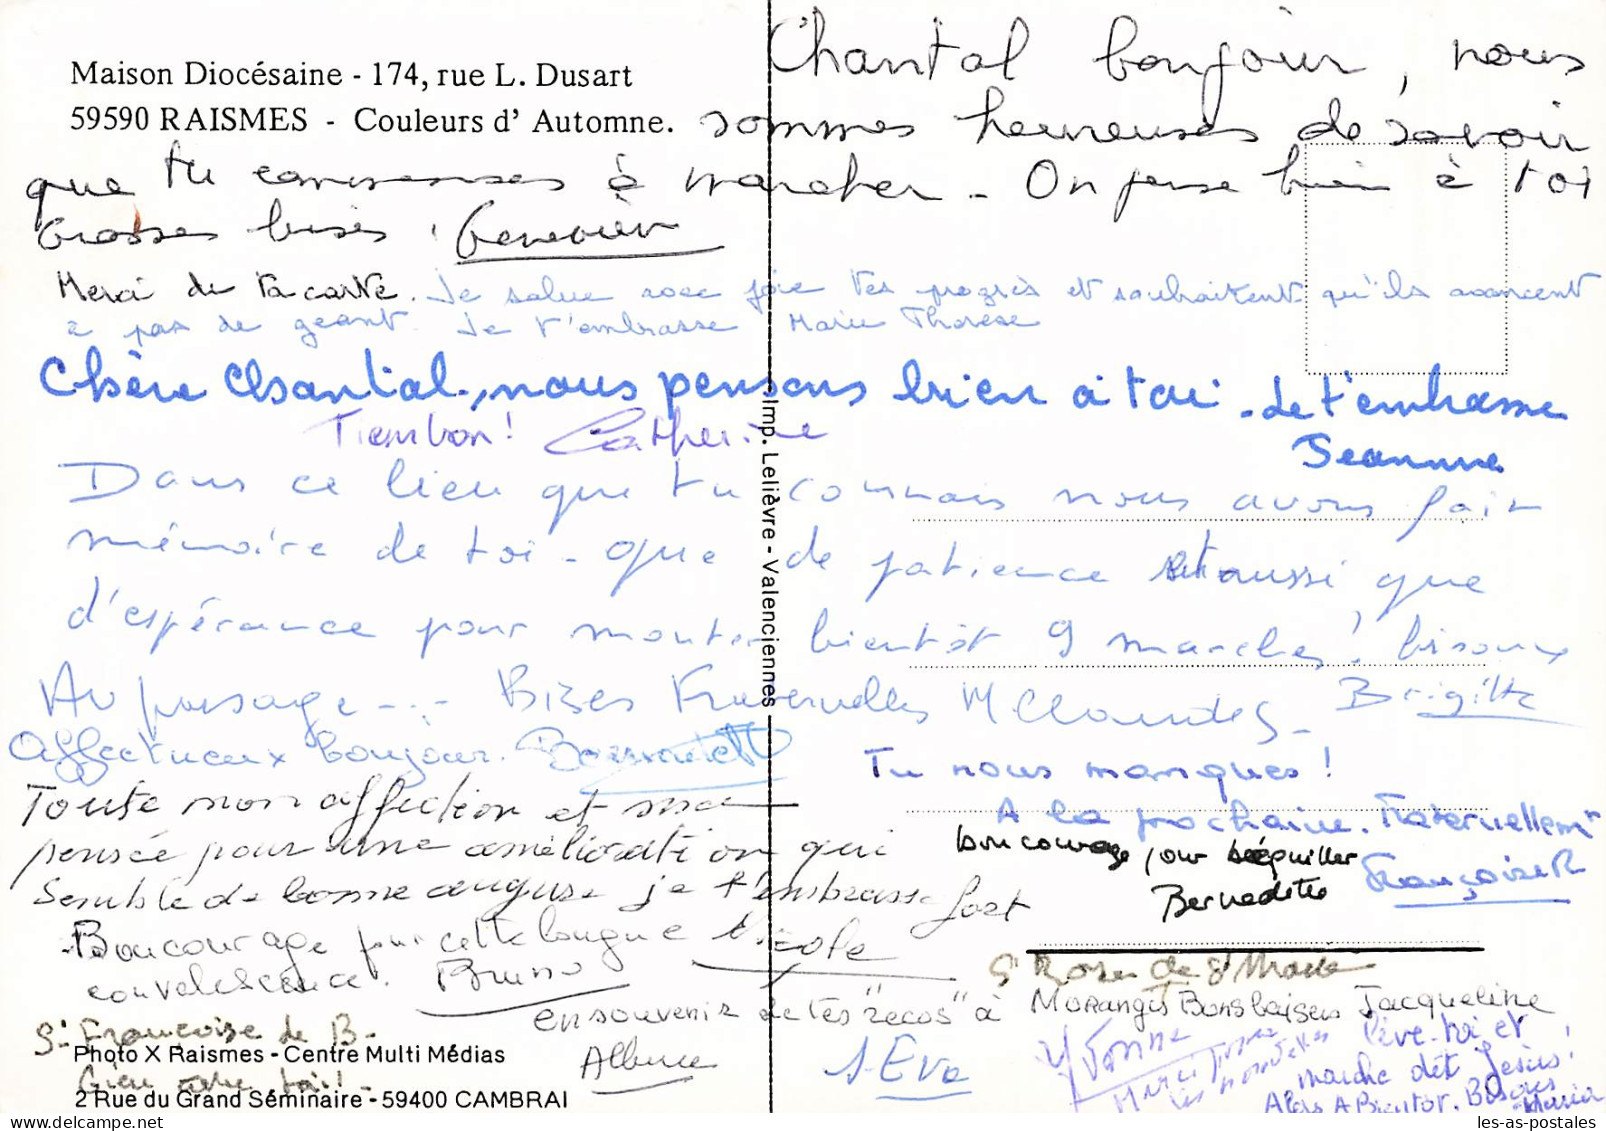 Maison Diocésaine - 174, rue L. Dusart
59590 RAISMES - Couleurs d' Automne.
Chantal bonjour, nous
sommes heureuses de savoir
que tu commences à marcher - On pense bien à toi
Grosses bises. Geneviève
Merci de ta carte. Je salue avec joie tes progrès et souhaitent qu'ils avancent
à pas de géant. Je t'embrasse Marie Thérèse
Chère Chantal, nous pensons bien à toi - Je t'embrasse
Jeanne
Tiens bon! Catherine
Dans ce lieu que tu connais nous avons fait
mémoire de toi - que de patience et aussi que
d'espérance pour monter bientôt 9 marches! bisoux
Brigitte
Au passage --- Bises Fraternelles M Claudes -
Affectueux bonjour. Bernadette
Tu nous manques!
A la prochaine. Fraternellemt
Françoise R
Toute mon affection et ma
pensée pour une amélioration qui
semble de bonne augure je t'embrasse fort
Nicole
bon courage pour béquiller
Bernadette
Bon courage pour cette longue
convalescence. Bruno
Sr Rose de St Marie
en souvenir de tes "récos" à Morangis Bons baisers Jacqueline
Sr Françoise de B.
bien avec toi! -
Alberte
S. Eva
Yvonne
Merci pour les nouvelles
lève-toi et
marche dit Jésus!
Alors A Bientôt. Bisous
Maria
Imp. Lelièvre - Valenciennes
Photo X Raismes - Centre Multi Médias
2 Rue du Grand Séminaire - 59400 CAMBRAI
les-as-postales